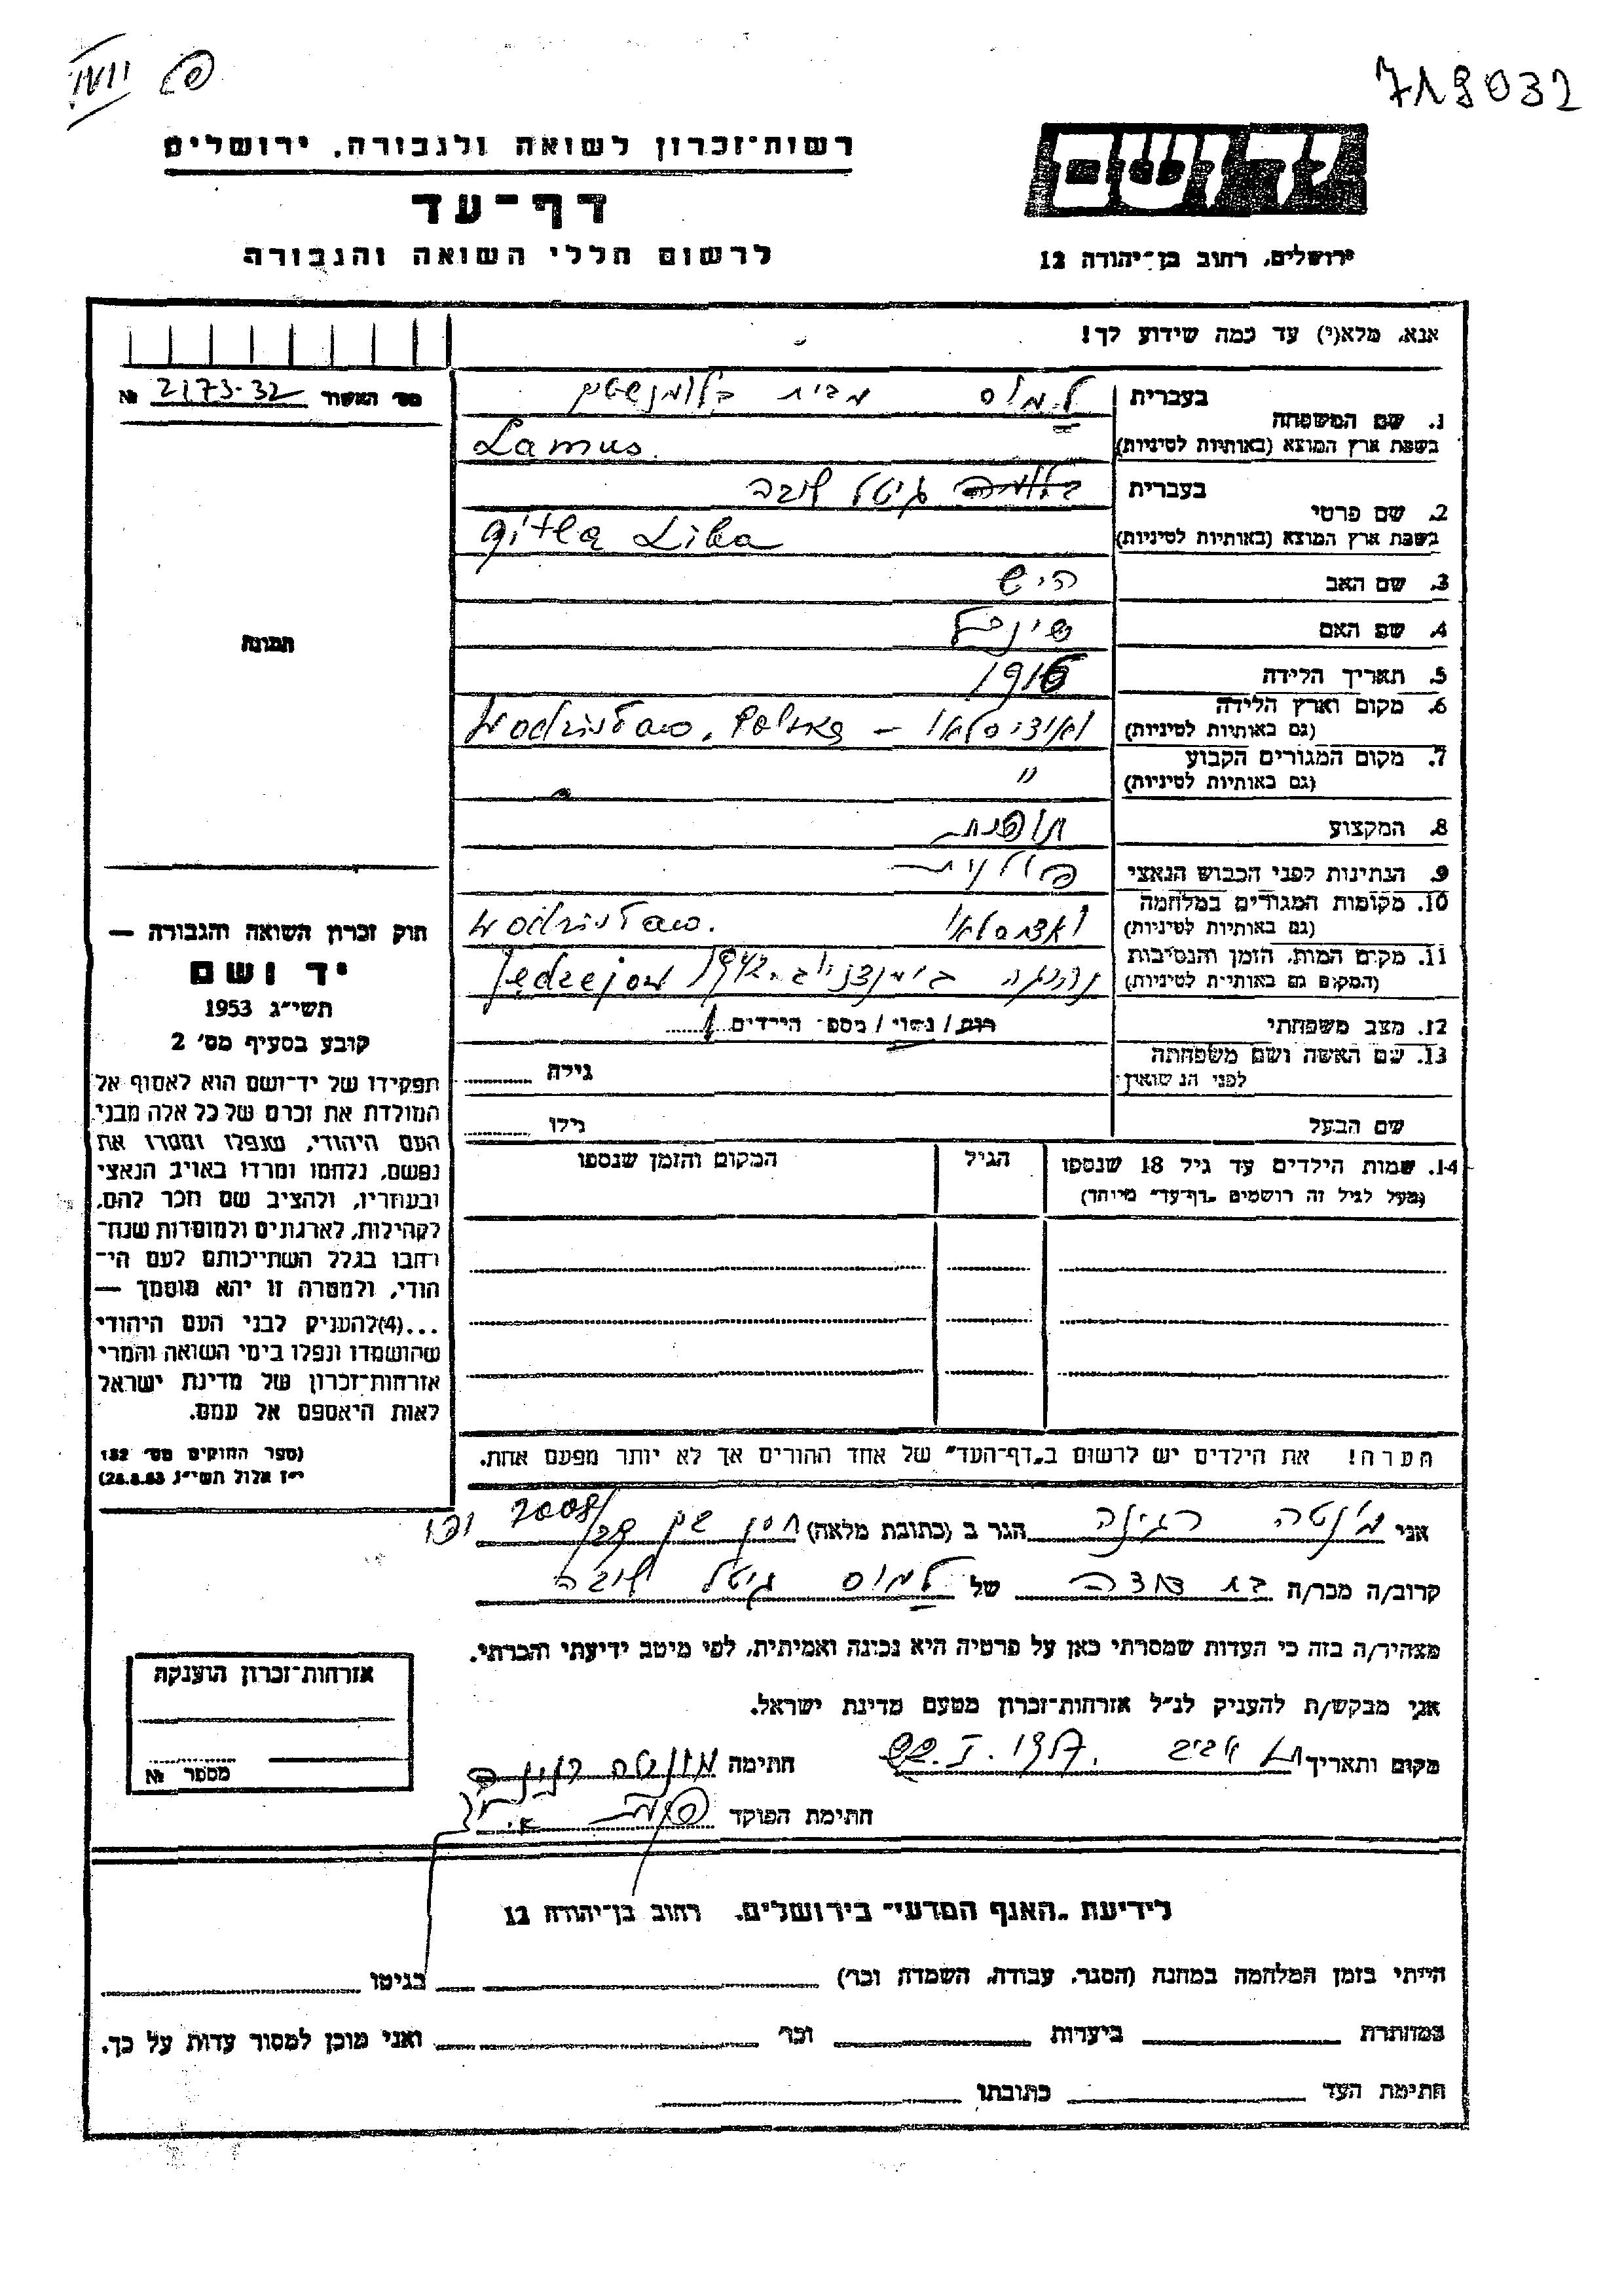 719032
רשות־זכרון לשואה ולגבורה, ירושלים
דף־עד
לרשום חללי השואה והגבורה
יד ושם
ירושלים, רחוב בן־יהודה 12
אנא, מלא(י) עד כמה שידוע לך!
מס׳ האשור 2173-32 №
1. שם המשפחה
בעברית
למוס מבית בלומנשטיין
בשפת ארץ המוצא (באותיות לטיניות)
Lamus.
2. שם פרטי
בעברית
גיטל ליבה
בשפת ארץ המוצא (באותיות לטיניות)
Gitla Liba
3. שם האב
הירש
4. שם האם
שיינדל
5. תאריך הלידה
1916
6. מקום וארץ הלידה
(גם באותיות לטיניות)
Wodzisław, Polska –
7. מקום המגורים הקבוע
(גם באותיות לטיניות)
״
8. המקצוע
תופרת
9. הנתינות לפני הכבוש הנאצי
פולנית
10. מקומות המגורים במלחמה
(גם באותיות לטיניות)
Wodzisław.
11. מקום המות, הזמן והנסיבות
(המקום גם באותיות לטיניות)
נהרגה 1942 Jędrzejow
12. מצב משפחתי
רווק / נשוי / מספר הילדים 1
13. שם האשה ושם משפחתה
לפני הנשואין
גילה
שם הבעל
גילו
14. שמות הילדים עד גיל 18 שנספו
(מעל לגיל זה רושמים „דף־עד״ מיוחד)
הגיל
המקום והזמן שנספו
הערה! את הילדים יש לרשום ב„דף־העד״ של אחד ההורים אך לא יותר מפעם אחת.
תמונה
חוק זכרון השואה והגבורה —
יד ושם
תשי״ג 1953
קובע בסעיף מס׳ 2
תפקידו של יד־ושם הוא לאסוף אל
המולדת את זכרם של כל אלה מבני
העם היהודי, שנפלו ומסרו את
נפשם, נלחמו ומרדו באויב הנאצי
ובעוזריו, ולהציב שם וזכר להם,
לקהילות, לארגונים ולמוסדות שנח־
רבו בגלל השתייכותם לעם הי־
הודי, ולמטרה זו יהא מוסמך —
...(4)להעניק לבני העם היהודי
שהושמדו ונפלו בימי השואה והמרי
אזרחות־זכרון של מדינת ישראל
לאות היאספם אל עמם.
(ספר החוקים מס׳ 132
י״ז אלול תשי״ג, 28.8.53)
אני מונטה רגינה הגר ב (כתובת מלאה) יפו
קרוב/ה מכר/ה בת דודה של למוס גיטל ליבה
מצהיר/ה בזה כי העדות שמסרתי כאן על פרטיה היא נכונה ואמיתית, לפי מיטב ידיעתי והכרתי.
אני מבקש/ת להעניק לנ״ל אזרחות־זכרון מטעם מדינת ישראל.
מקום ותאריך ת״א יפו 1957. חתימה מונטה רגינה
חתימת הפוקד
אזרחות־זכרון הוענקה
מספר №
לידיעת „האגף המדעי״ בירושלים. רחוב בן־יהודה 12
הייתי בזמן המלחמה במחנה (הסגר, עבודה, השמדה וכר׳) בגיטו
במחתרת ביערות וכר׳ ואני מוכן למסור עדות על כך.
חתימת העד כתובתו